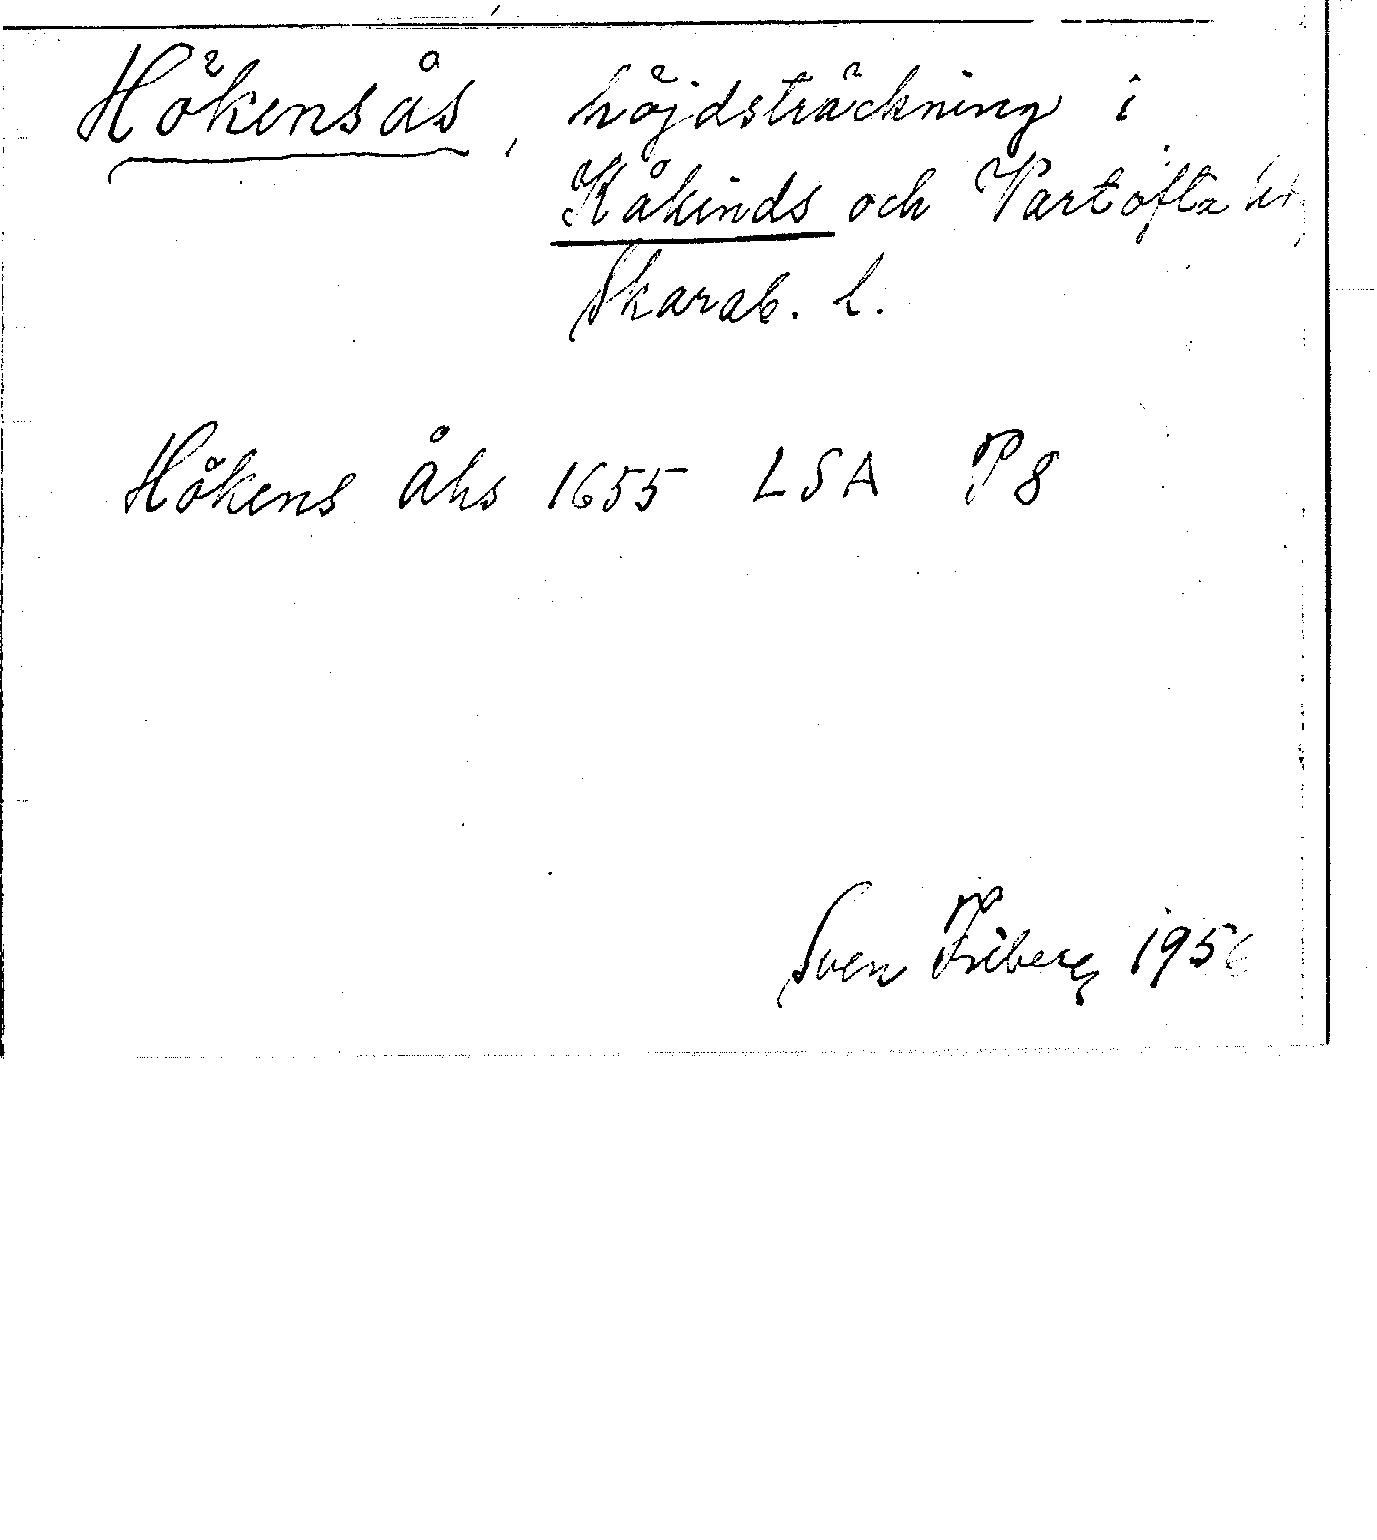 Hökensås, höjdsträckning i
Kåkinds och Vartofta hd,
Skarab. l.
Hökens Åhs 1655 LSA P8
Sven Friberg 1956